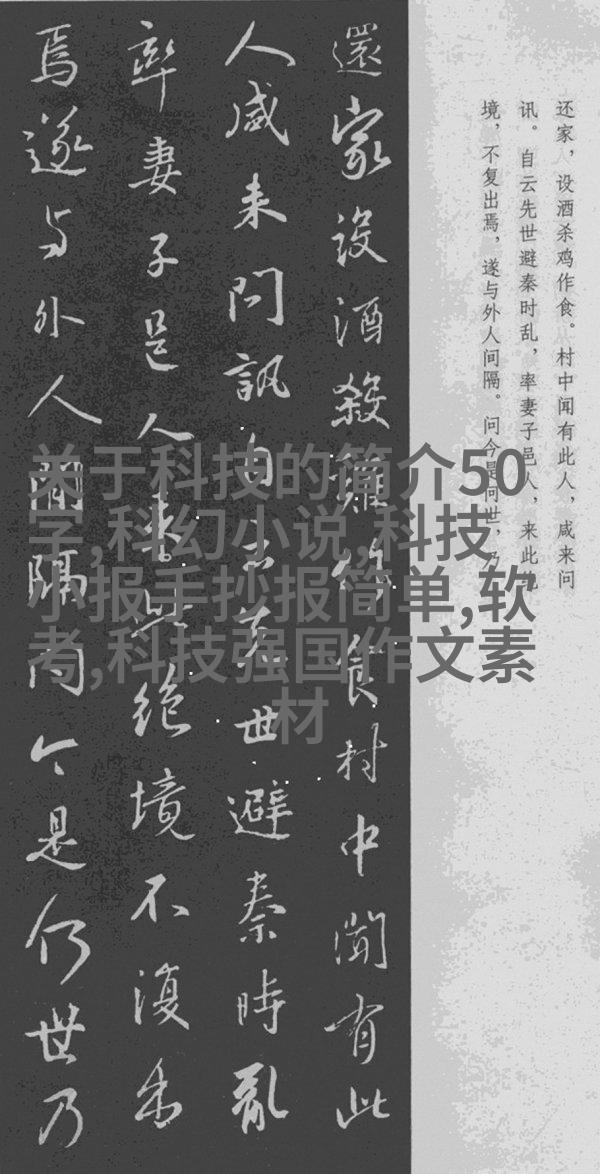 还家，设酒杀鸡作食。村中闻有此人，咸来问
讯。自云先世避秦时乱，率妻子邑人，来此绝
境，不复出焉，遂与外人间隔。问今是何世，乃
還家設酒殺雞作食村中聞有此
人咸来問訊自云先世避秦時亂
率妻子邑人来此絶境不復出
焉遂与外人間隔問今是何世乃
关于科技的简介50
字,科幻小说,科技
小报手抄报简单,软
考,科技强国作文素
材